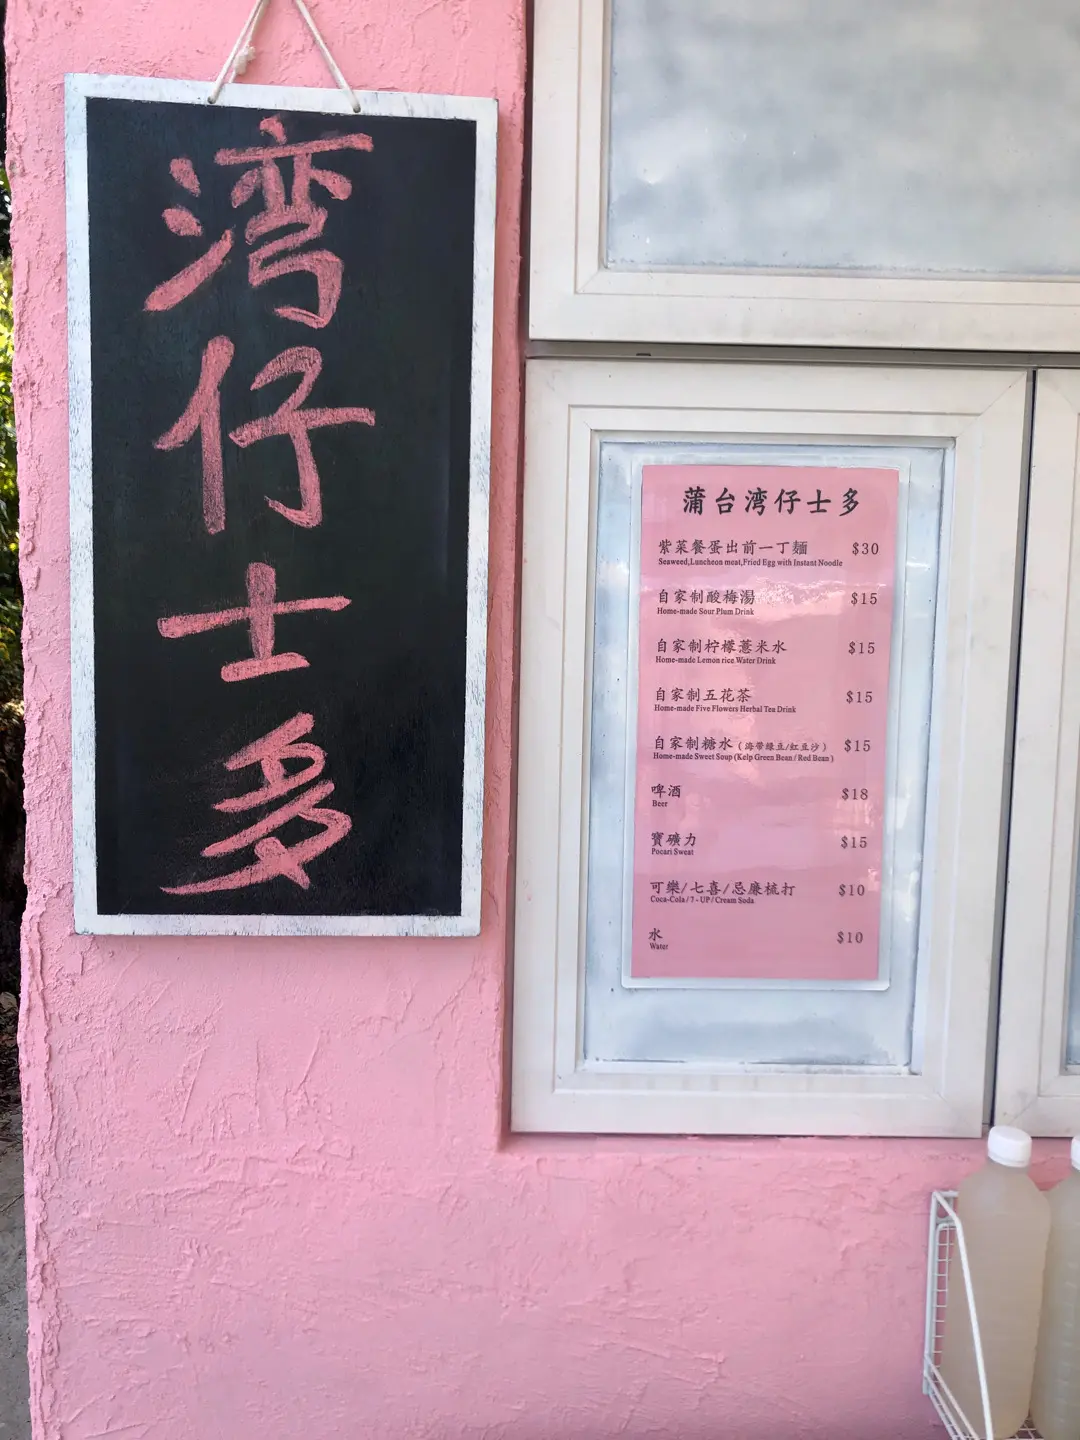 湾仔士多
蒲台湾仔士多
紫菜餐蛋出前一丁麵 $30
Seaweed,Luncheon meat,Fried Egg with Instant Noodle
自家制酸梅湯 $15
Home-made Sour Plum Drink
自家制柠檬薏米水 $15
Home-made Lemon rice Water Drink
自家制五花茶 $15
Home-made Five Flowers Herbal Tea Drink
自家制糖水 (海帶綠豆/紅豆沙) $15
Home-made Sweet Soup (Kelp Green Bean / Red Bean )
啤酒 $18
Beer
寶礦力 $15
Pocari Sweat
可樂/七喜/忌廉梳打 $10
Coca-Cola / 7 - UP / Cream Soda
水 $10
Water